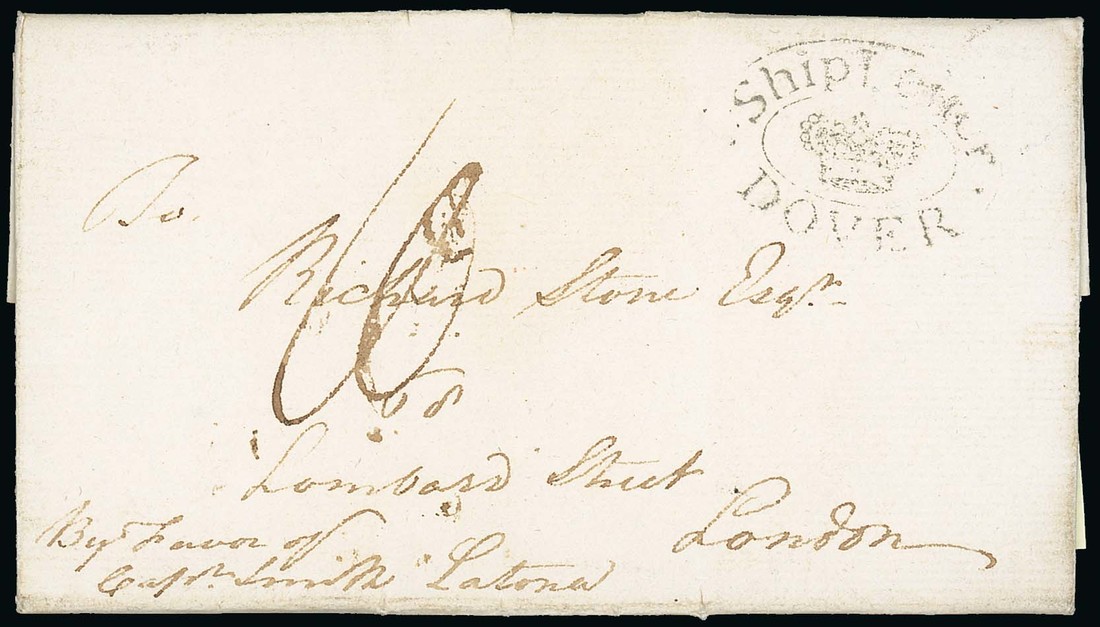 Ship Letter
DOVER
To
Richard Stone Esqr
68
Lombard Street
London
By Favor of
Captn Smith Latona